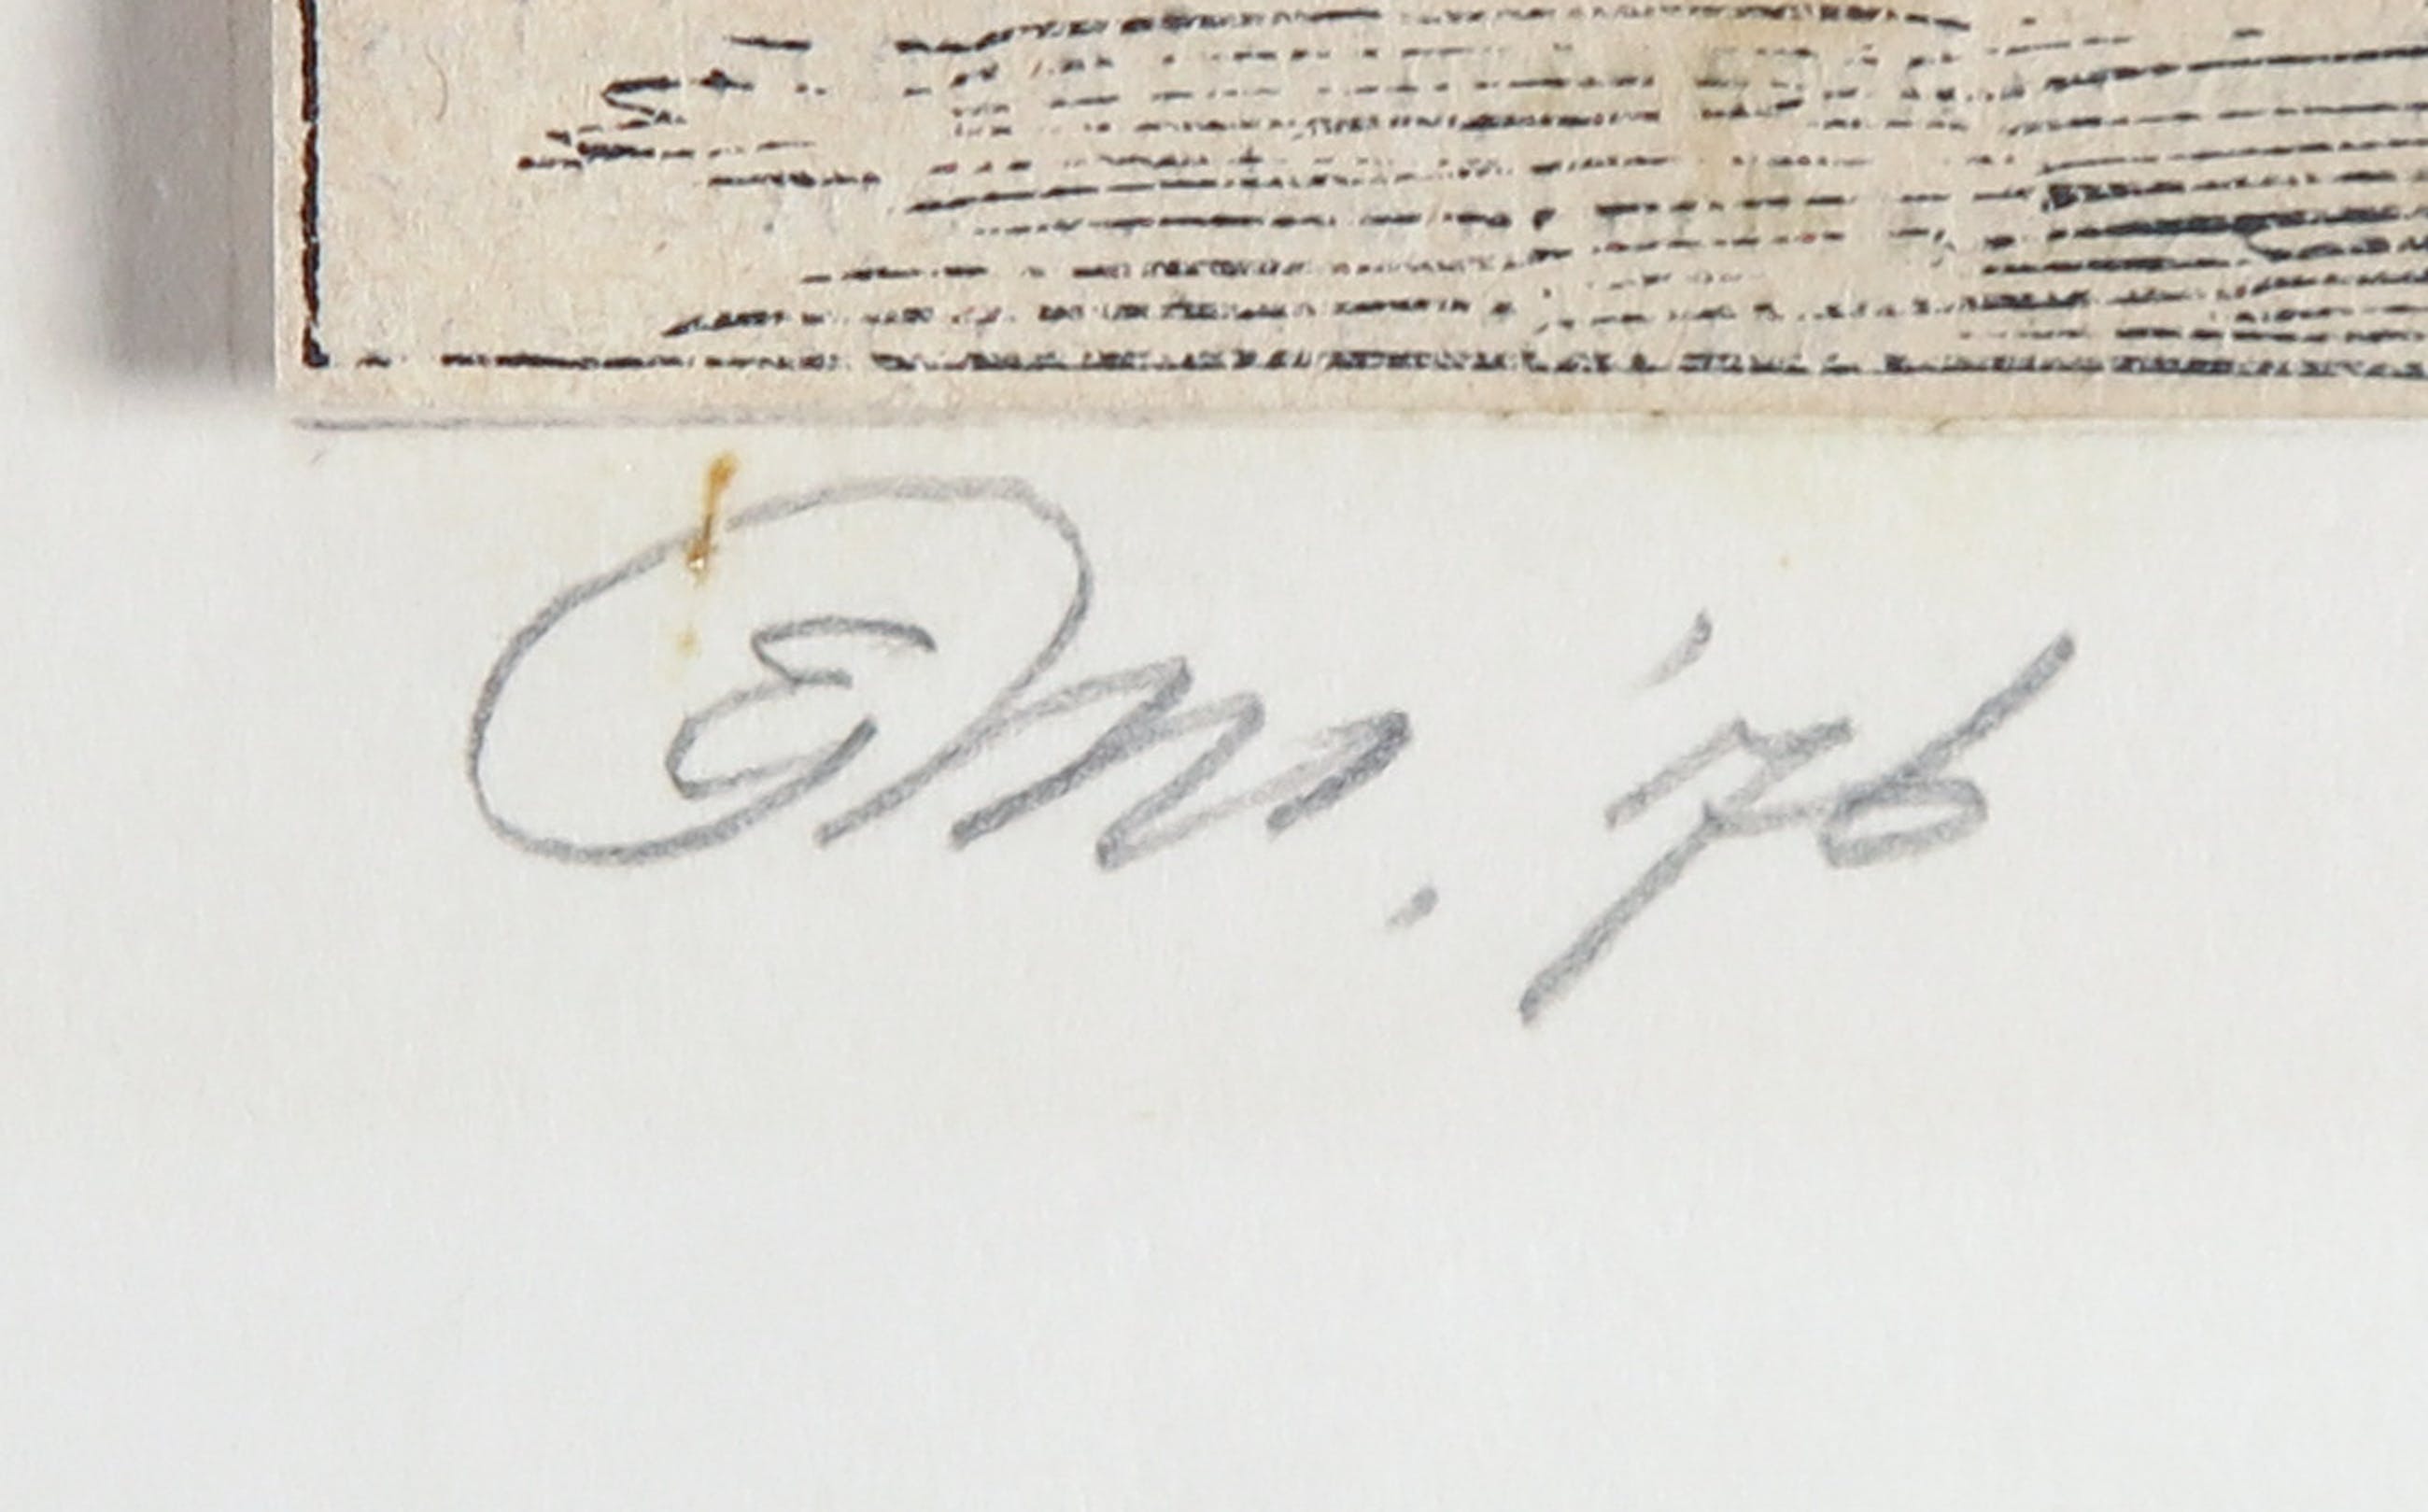 Em. '76